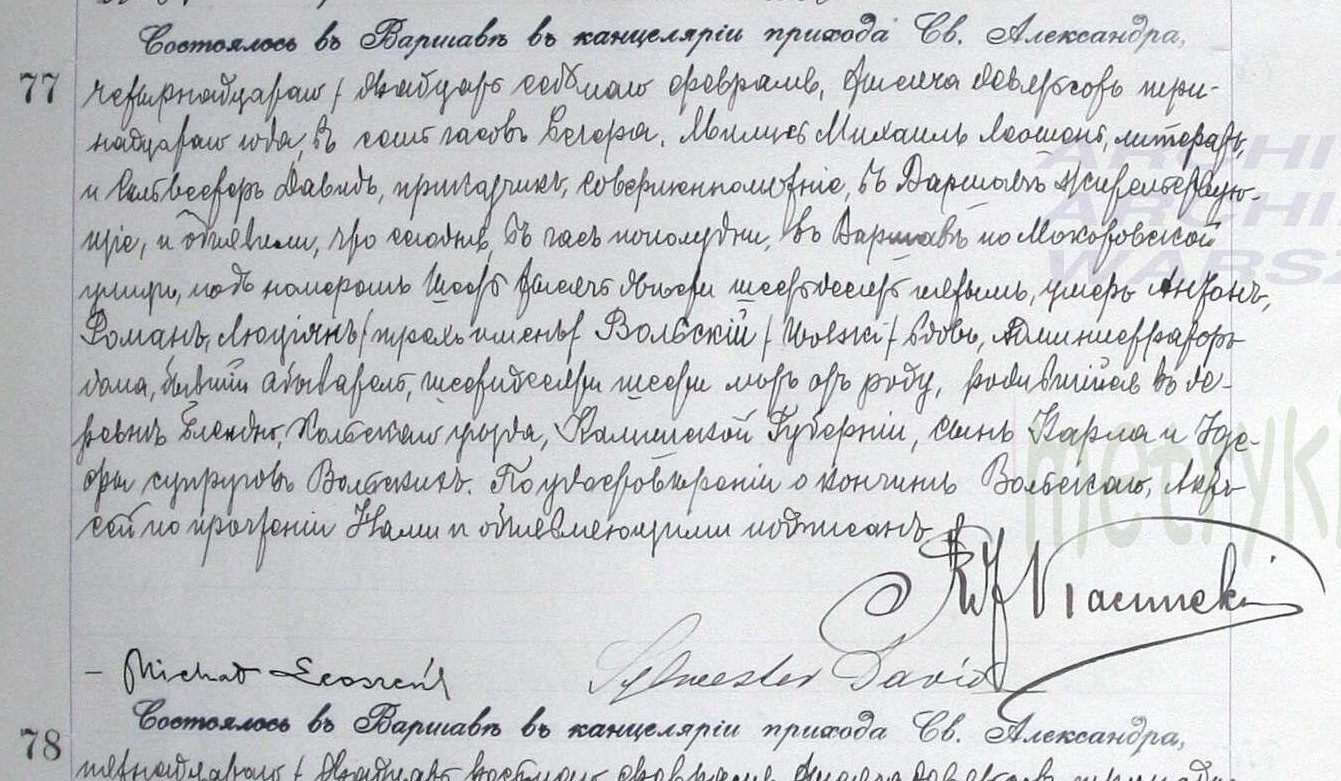 Состоялось въ Варшавѣ въ канцеляріи прихода Св. Александра,
77 четырнадцатаго / двадцать седьмаго февраля, тысяча девятьсотъ три-
надцатаго года, въ семь часовъ вечера. Явились Михаилъ литератъ,
и Сильвестеръ Давидъ, прикащикъ, совершеннолѣтніе, въ Варшавѣ жительствую-
щіе, и объявили, что сегодня, въ часъ пополудни, въ Варшавѣ по Мокотовской
улицѣ, подъ номеромъ шесть тысячъ двѣсти шестьдесятъ пятымъ, умеръ Антонъ,
Романъ, Люціянъ / трехъ именъ / Вольскій / Wolski / вдовъ, администраторъ
дома, бывшій шестидесяти шести лѣтъ отъ роду, родившійся въ де-
ревнѣ Кольскаго уѣзда, Калишской Губерніи, сынъ Карла и
супруговъ Вольскихъ. По удостовѣреніи о кончинѣ Вольскаго, Актъ
сей по прочтеніи Нами и объявляющими подписанъ.
Michał Sylwester David
78 Состоялось въ Варшавѣ въ канцеляріи прихода Св. Александра,
пятнадцатаго / двадцать восьмаго февраля тысяча девятьсотъ
ARCHI
ARCHI
WARSZ
metryk